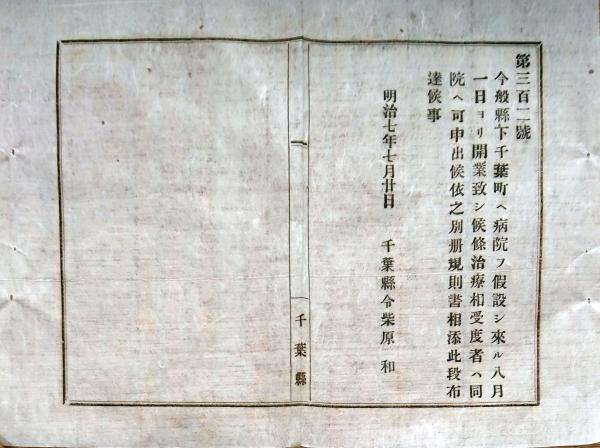 第三百二號
今般縣下千葉町ヘ病院ヲ假設シ來ル八月
一日ヨリ開業致シ候條治療相受度者ハ同
院ヘ可申出候依之別册規則書相添此段布
達候事
明治七年七月廿日 千葉縣令柴原 和
千葉縣